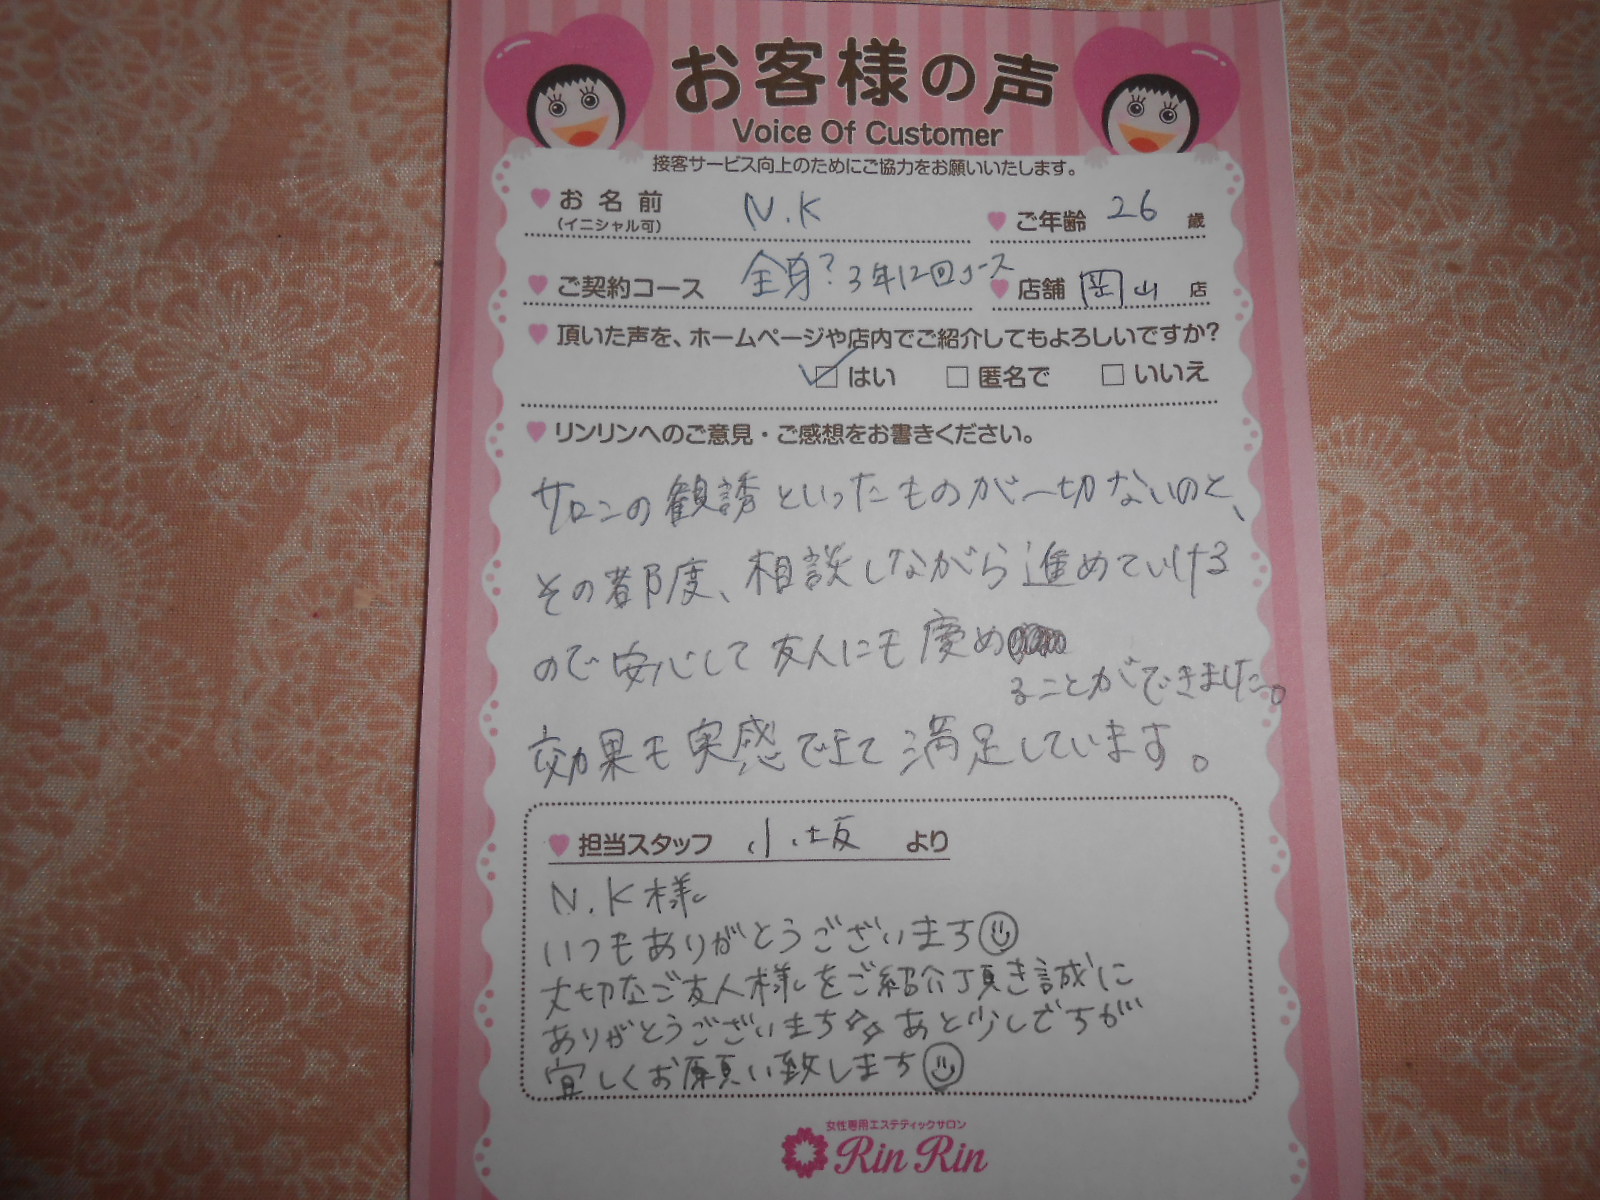 お客様の声
Voice Of Customer
接客サービス向上のためにご協力をお願いいたします。
お名前 N.K
(イニシャル可)
ご年齢 26 歳
ご契約コース 全身？3年12回コース
店舗 岡山 店
頂いた声を、ホームページや店内でご紹介してもよろしいですか？
☑はい □匿名で □いいえ
リンリンへのご意見・ご感想をお書きください。
サロンの観誘といったものが一切ないのと、
その都度、相談しながら進めていける
ので安心して友人にも慶め
ることができました。
効果も実感できて満足しています。
担当スタッフ 小坂 より
N.K様
いつもありがとうございます
大切なご友人様をご紹介頂き誠に
ありがとうございます あと少しですが
宜しくお願い致します
女性専用エステティックサロン
Rin Rin